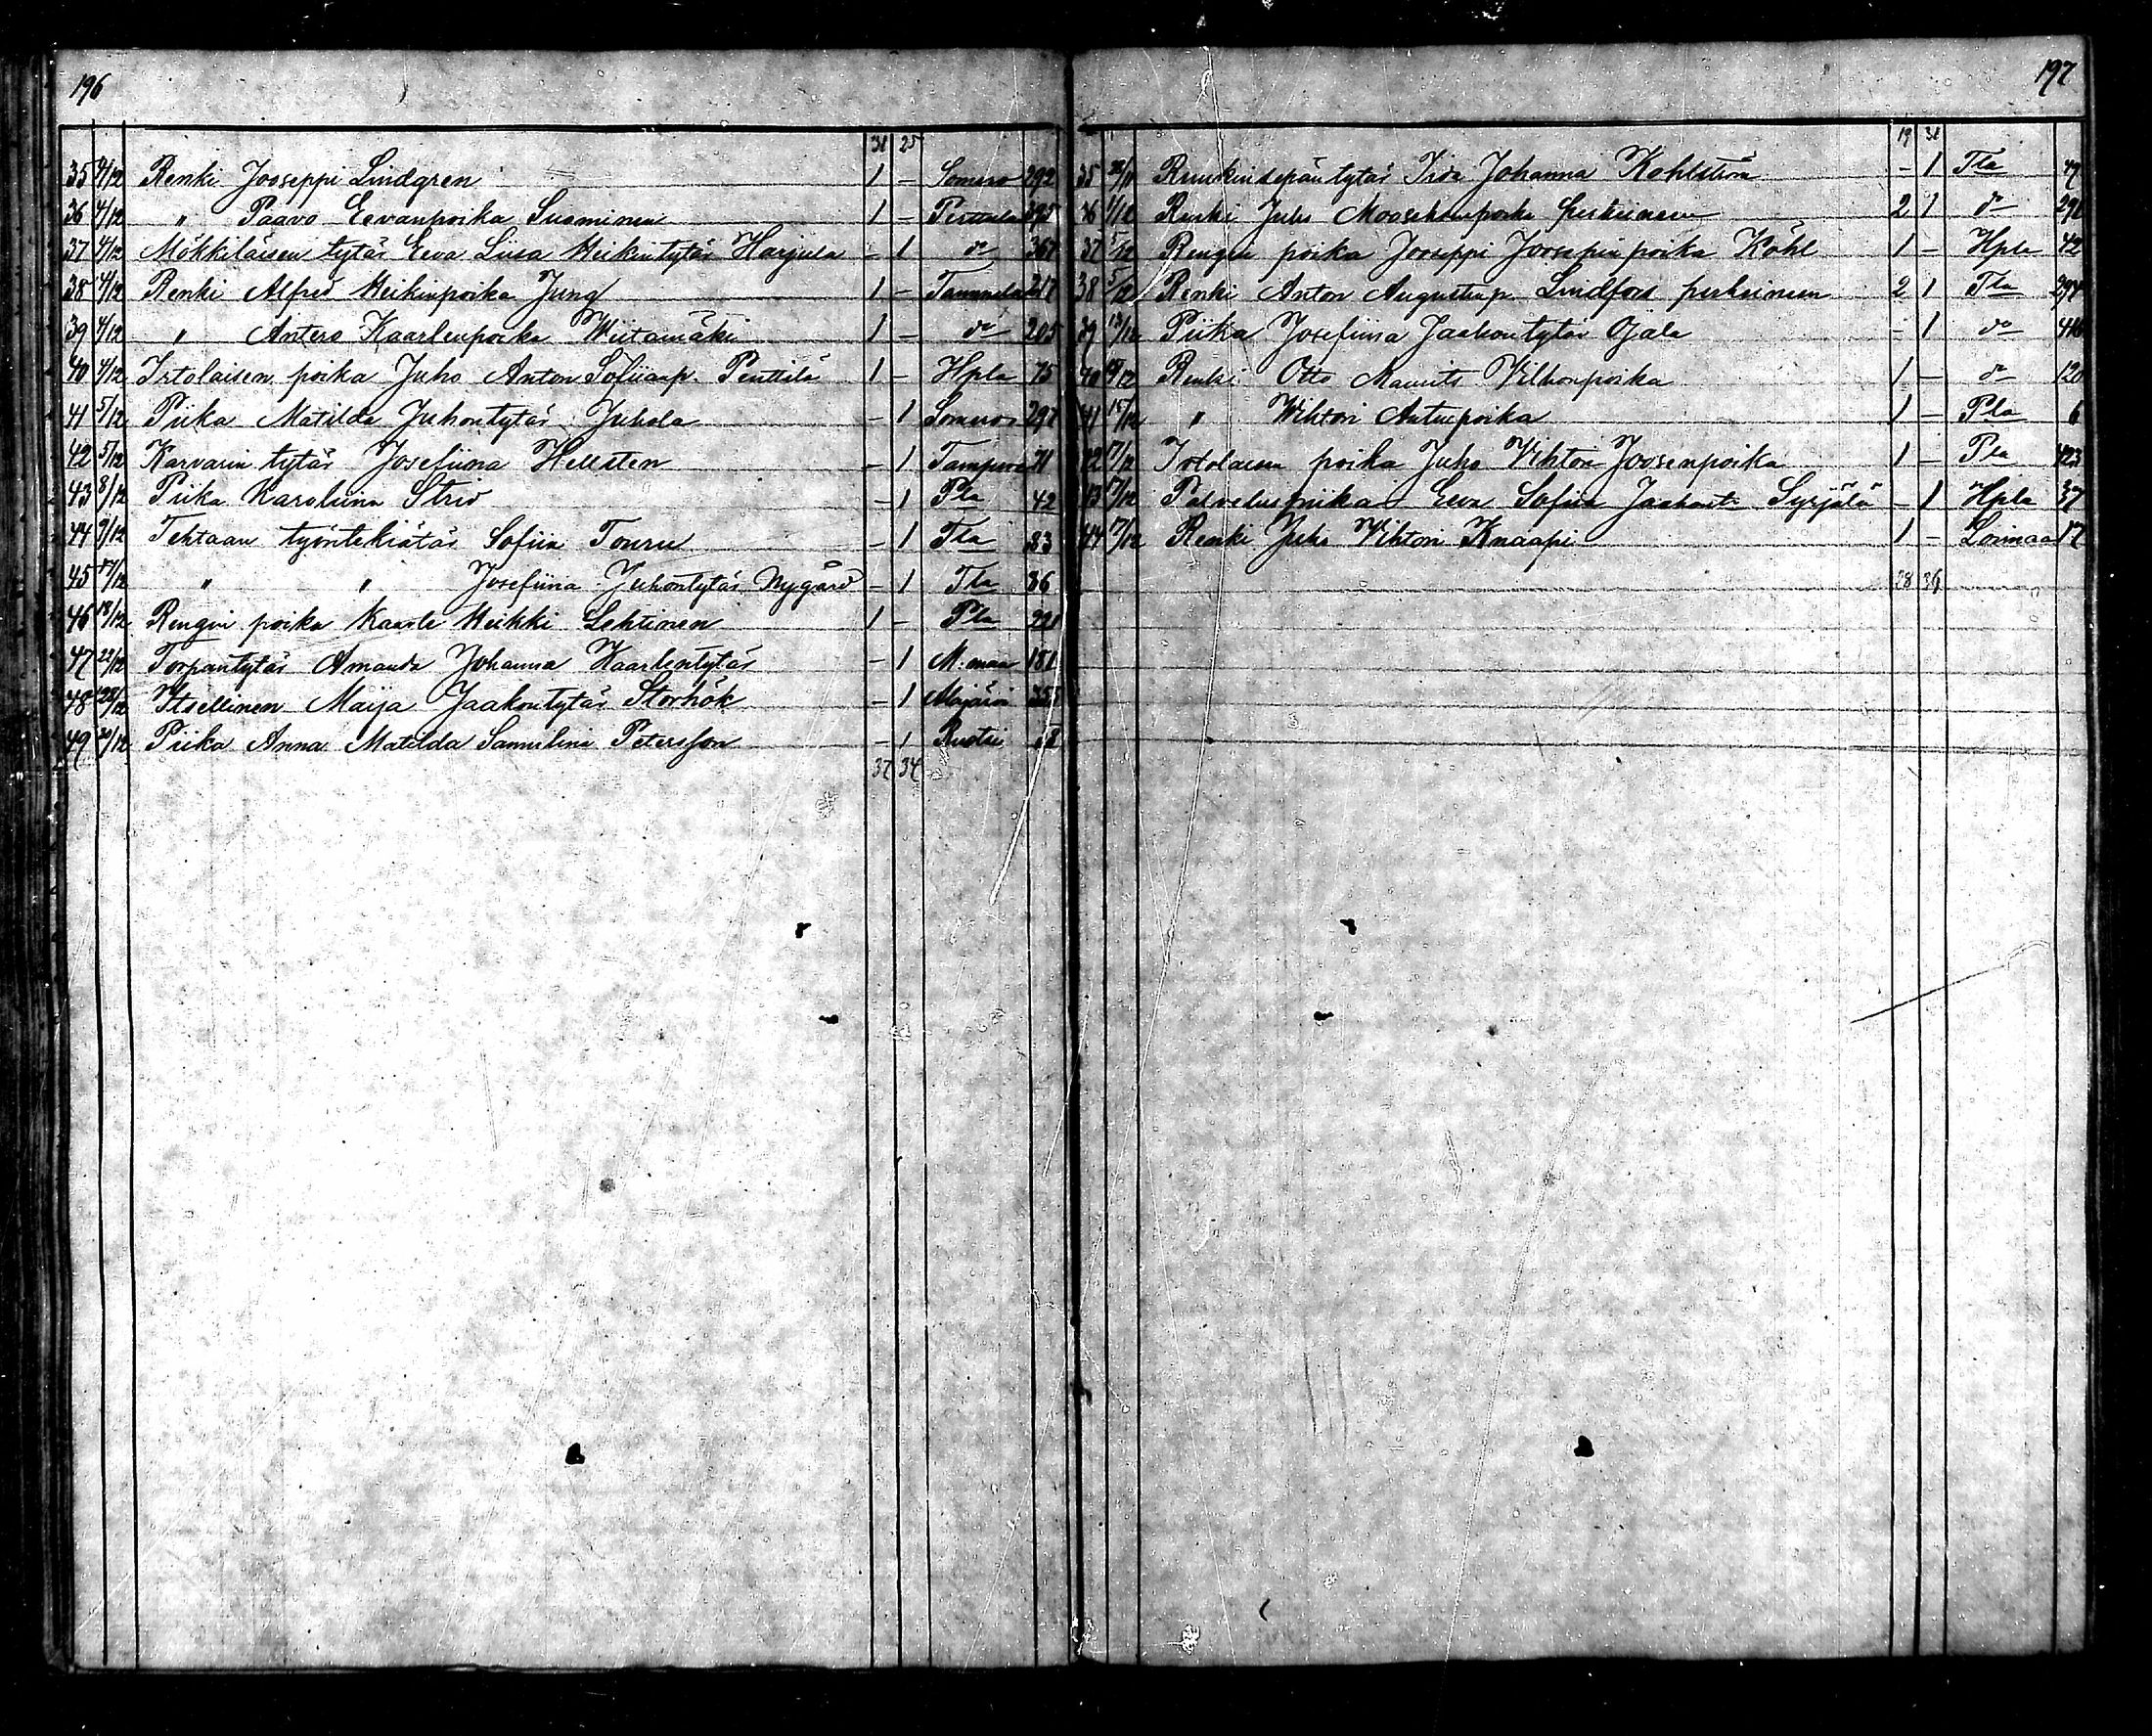 196
31 25
35 4/12 Renki Jooseppi Lindgren 1 - Somero 292
36 4/12 " Paavo Eevanpoika Suominen 1 - Perttula 395
37 4/12 Mökkiläisen tytär Eeva Liisa Heikintytär Harjula - 1 do 367
38 4/12 Renki Alfred Heikinpoika Jung 1 - Tammela 217
39 4/12 " Antero Kaarlenpoika Wiitamäki 1 - do 205
40 4/12 Irtolaisen poika Juho Anton Sofianp. Penttilä 1 - Hpla 75
41 5/12 Piika Matilda Juhontytär Juhola - 1 Somero 297
42 5/12 Karvarin tytär Josefiina Hellsten - 1 Tampere 71
43 8/12 Piika Karoliina Strid - 1 Pla 42
44 9/12 Tehtaan työntekiätär Sofiia Touru - 1 Tla 83
45 17/12 " " Josefiina Juhontytär Nygård - 1 Tla 36
46 18/12 Rengin poika Kaarle Heikki Lehtinen 1 - Pla 221
47 22/12 Torpantytär Amanda Johanna Kaarlentytär - 1 M.maa 181
48 28/12 Itsellinen Maija Jaakontytär Storhök - 1 Majärvi
49 29/12 Piika Anna Matilda Samulini Petersson - 1 Ruotsi
37 34
197
19 31
35 28/11 Ruukinsepäntytär Iida Johanna Kohlström - 1 Tla 49
36 1/12 Renki Juho perheineen 2 1 do 291
37 5/12 Rengin poika Jooseppi Joosepinpoika Köhl 1 - Hpla 42
38 5/12 Renki Anton Augustinp. Lindfors perheineen 2 1 Tla 294
39 13/12 Piika Josefiina Jaakontytär Ojala - 1 do
40 Renki Otto Maurits Vilhonpoika 1 - do 120
41 15/12 " Wihtori Antinpoika 1 - Pla 6
42 17/12 Irtolaisen poika Juho Vihtori Joosenpoika 1 - Pla 423
43 17/12 Palveluspiika Eeva Sofiia Jaakont. Syrjälä - 1 Hpla 37
44 17/12 Renki Juho Vihtori Knaapi 1 - Loimaa 17
28 36